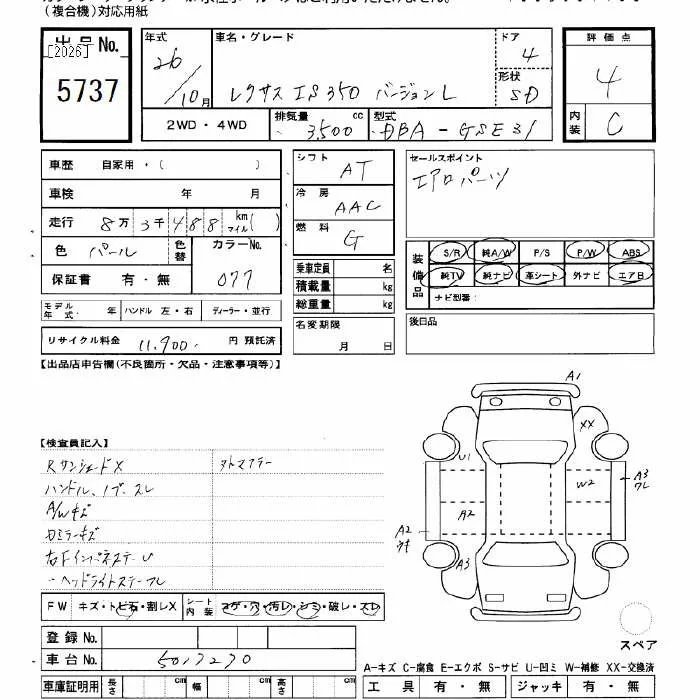 (複合機)対応用紙
出品No.
[2026]
5737
年式
26/10月
車名・グレード
レクサス IS350 バージョンL
ドア
4
形状
SD
評価点
4
内装
C
2WD・4WD
排気量 3,500 cc
型式 DBA-GSE31
車歴 自家用・( )
車検 年 月
走行 8万3千488 km マイル( )
色 パール 色替
カラーNo. 077
保証書 有・無
シフト AT
冷房 AAC
燃料 G
乗車定員 名
積載量 kg
総重量 kg
セールスポイント
エアロパーツ
装備品
S/R 純A/W P/S P/W ABS
純TV 純ナビ 革シート 外ナビ エアB
ナビ型番:
モデル年式: 年 ハンドル 左・右 ディーラー・並行
名変期限 月 日
後日品
リサイクル料金 11,900 円 預託済
【出品店申告欄(不良箇所・欠品・注意事項等)】
【検査員記入】
RサンシェードX
ハンドル、ノブ、スレ
A/Wキズ
ヘッドライト
FW キズ・トビ石・割レX
シート内装 コゲ・穴・汚レ・シミ・破レ・スレ
A1
XX
U1
W2
A3
ワレ
A2
A2
A3
スペア
登録No.
車台No. 5017270
A-キズ C-腐食 E-エクボ S-サビ U-凹ミ W-補修 XX-交換済
車庫証明用 長さ cm 幅 cm 高さ cm
工具 有・無 ジャッキ 有・無